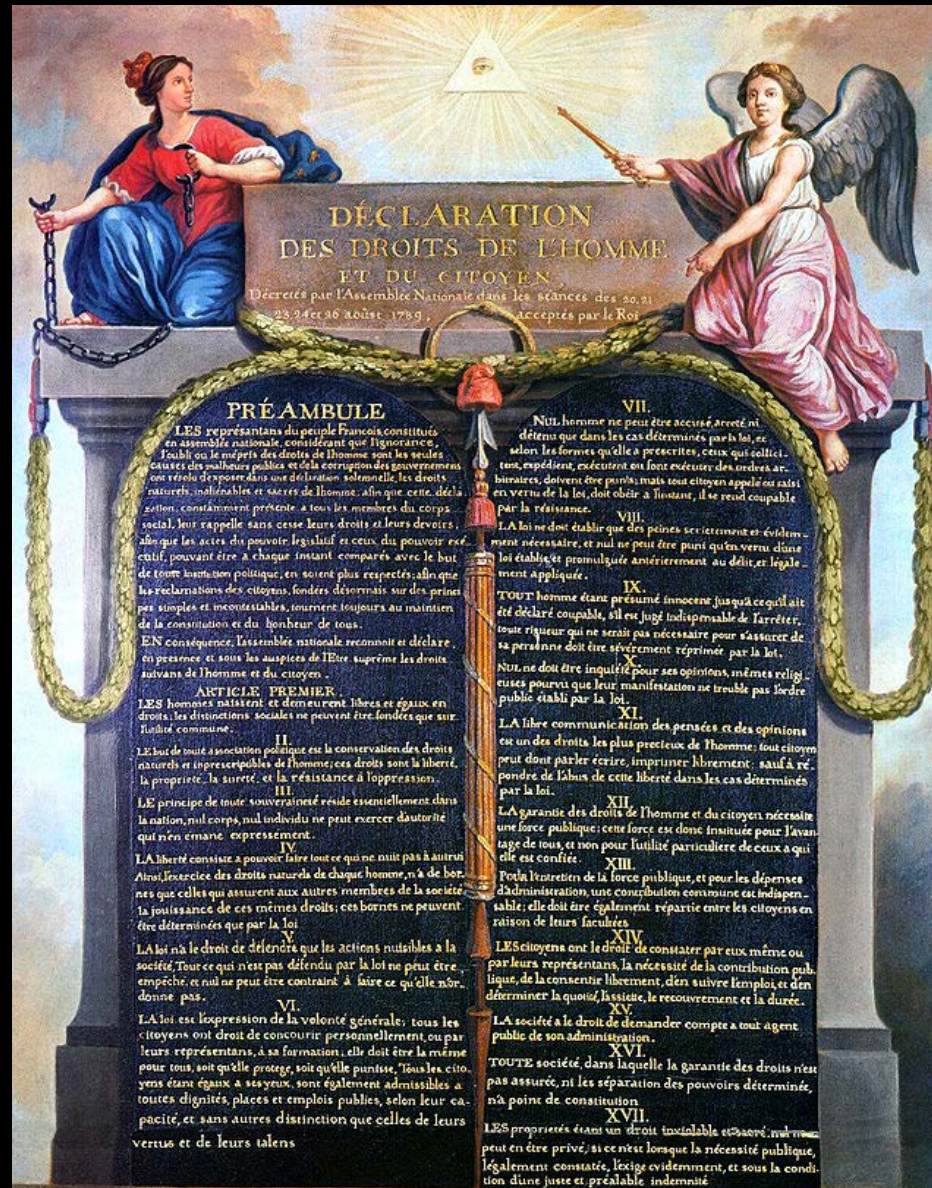 DÉCLARATION
DES DROITS DE L'HOMME
ET DU CITOYEN,
Décretés par l'Assemblée Nationale dans les séances des 20, 21
23, 24 et 26 août 1789, acceptés par le Roi
PRÉAMBULE
LES représantans du peuple François, constitués
en assemblée nationale, considérant que l'ignorance,
l'oubli ou le mépris des droits de l'homme sont les seules
causes des malheurs publics et de la corruption des gouvernemens
ont résolu d'exposer dans une déclaration solemnelle, les droits
naturels, inaliénables et sacrés de l'homme; afin que cette décla
ration, constamment présente a tous les membres du corps
social, leur rappelle sans cesse leurs droits et leurs devoirs,
afin que les actes du pouvoir législatif et ceux du pouvoir exé
cutif, pouvant être a chaque instant comparés avec le but
de toute institution politique, en soient plus respectés; afin que
les réclamations des citoyens, fondées désormais sur des princi
pes simples et incontestables, tournent toujours au maintien
de la constitution et du bonheur de tous.
EN conséquence, l'assemblée nationale reconnoit et déclare,
en presence et sous les auspices de l'Etre suprême les droits
suivans de l'homme et du citoyen.
ARTICLE PREMIER.
LES hommes naissent et demeurent libres et égaux en
droits, les distinctions sociales ne peuvent être fondées que sur
l'utilité commune.
II.
LE but de toute association politique est la conservation des droits
naturels et inprescriptibles de l'homme; ces droits sont la liberté,
la propriété, la sureté, et la résistance à l'oppression.
III.
LE principe de toute souveraineté réside essentiellement dans
la nation, nul corps, nul individu ne peut exercer d'autorité
qui n'en emane expressement.
IV.
LA liberté consiste a pouvoir faire tout ce qui ne nuit pas à autrui
Ainsi, l'exercice des droits naturels de chaque homme, n'a de bor-
nes que celles qui assurent aux autres membres de la société
la jouissance de ces mêmes droits; ces bornes ne peuvent
être déterminées que par la loi
V.
LA loi n'a le droit de défendre que les actions nuisibles a la
société. Tout ce qui n'est pas défendu par la loi ne peut être
empêché, et nul ne peut être contraint à faire ce qu'elle n'or-
donne pas.
VI.
LA loi est l'expression de la volonté générale; tous les
citoyens ont droit de concourir personnellement, ou par
leurs représentans, à sa formation; elle doit être la même
pour tous, soit qu'elle protege, soit qu'elle punisse. Tous les cito-
yens étant égaux a ses yeux, sont également admissibles a
toutes dignités, places et emplois publics, selon leur ca-
pacité, et sans autres distinction que celles de leurs
vertus et de leurs talens
VII.
NUL homme ne peut être accusé, arreté ni
détenu que dans les cas déterminés par la loi, et
selon les formes qu'elle a prescrites, ceux qui sollici-
tent, expédient, exécutent ou font exécuter des ordres ar-
bitraires, doivent être punis; mais tout citoyen appelé ou saisi
en vertu de la loi, doit obéir a l'instant, il se rend coupable
par la résistance.
VIII.
LA loi ne doit établir que des peines strictement et évidem-
ment nécessaire, et nul ne peut être puni qu'en vertu d'une
loi établie et promulguée antérierement au délit, et légale-
ment appliquée.
IX.
TOUT homme étant présumé innocent jusqu'à ce qu'il ait
été déclaré coupable, s'il est jugé indispensable de l'arrêter,
toute rigueur qui ne serait pas nécessaire pour s'assurer de
sa personne doit être sévèrement réprimée par la loi.
X.
NUL ne doit être inquiété pour ses opinions, mêmes religi-
euses pourvu que leur manifestation ne trouble pas l'ordre
public établi par la loi.
XI.
LA libre communication des pensées et des opinions
est un des droits les plus precieux de l'homme; tout citoyen
peut donc parler écrire, imprimer librement; sauf à ré-
pondre de l'abus de cette liberté dans les cas déterminés
par la loi.
XII.
LA garantie des droits de l'homme et du citoyen nécessite
une force publique; cette force est donc instituée pour l'avan-
tage de tous, et non pour l'utilité particuliere de ceux a qui
elle est confiée.
XIII.
POUR l'entretien de la force publique, et pour les dépenses
d'administration, une contribution commune est indispen-
sable; elle doit être également répartie entre les citoyens en
raison de leurs facultées
XIV.
LES citoyens ont le droit de constater par eux même ou
par leurs représentans, la nécessité de la contribution pub-
lique, de la consentir librement, d'en suivre l'emploi, et d'en
déterminer la quotité, l'assiette, le recouvrement et la durée.
XV.
LA société a le droit de demander compte a tout agent
public de son administration.
XVI.
TOUTE société, dans laquelle la garantie des droits n'est
pas assurée, ni les séparation des pouvoirs déterminée,
n'a point de constitution
XVII.
LES proprietés étant un droit inviolable et sacré, nul ne
peut en être privé, si ce n'est lorsque la nécessité publique,
légalement constatée, l'exige evidemment, et sous la condi-
tion d'une juste et préalable indemnité